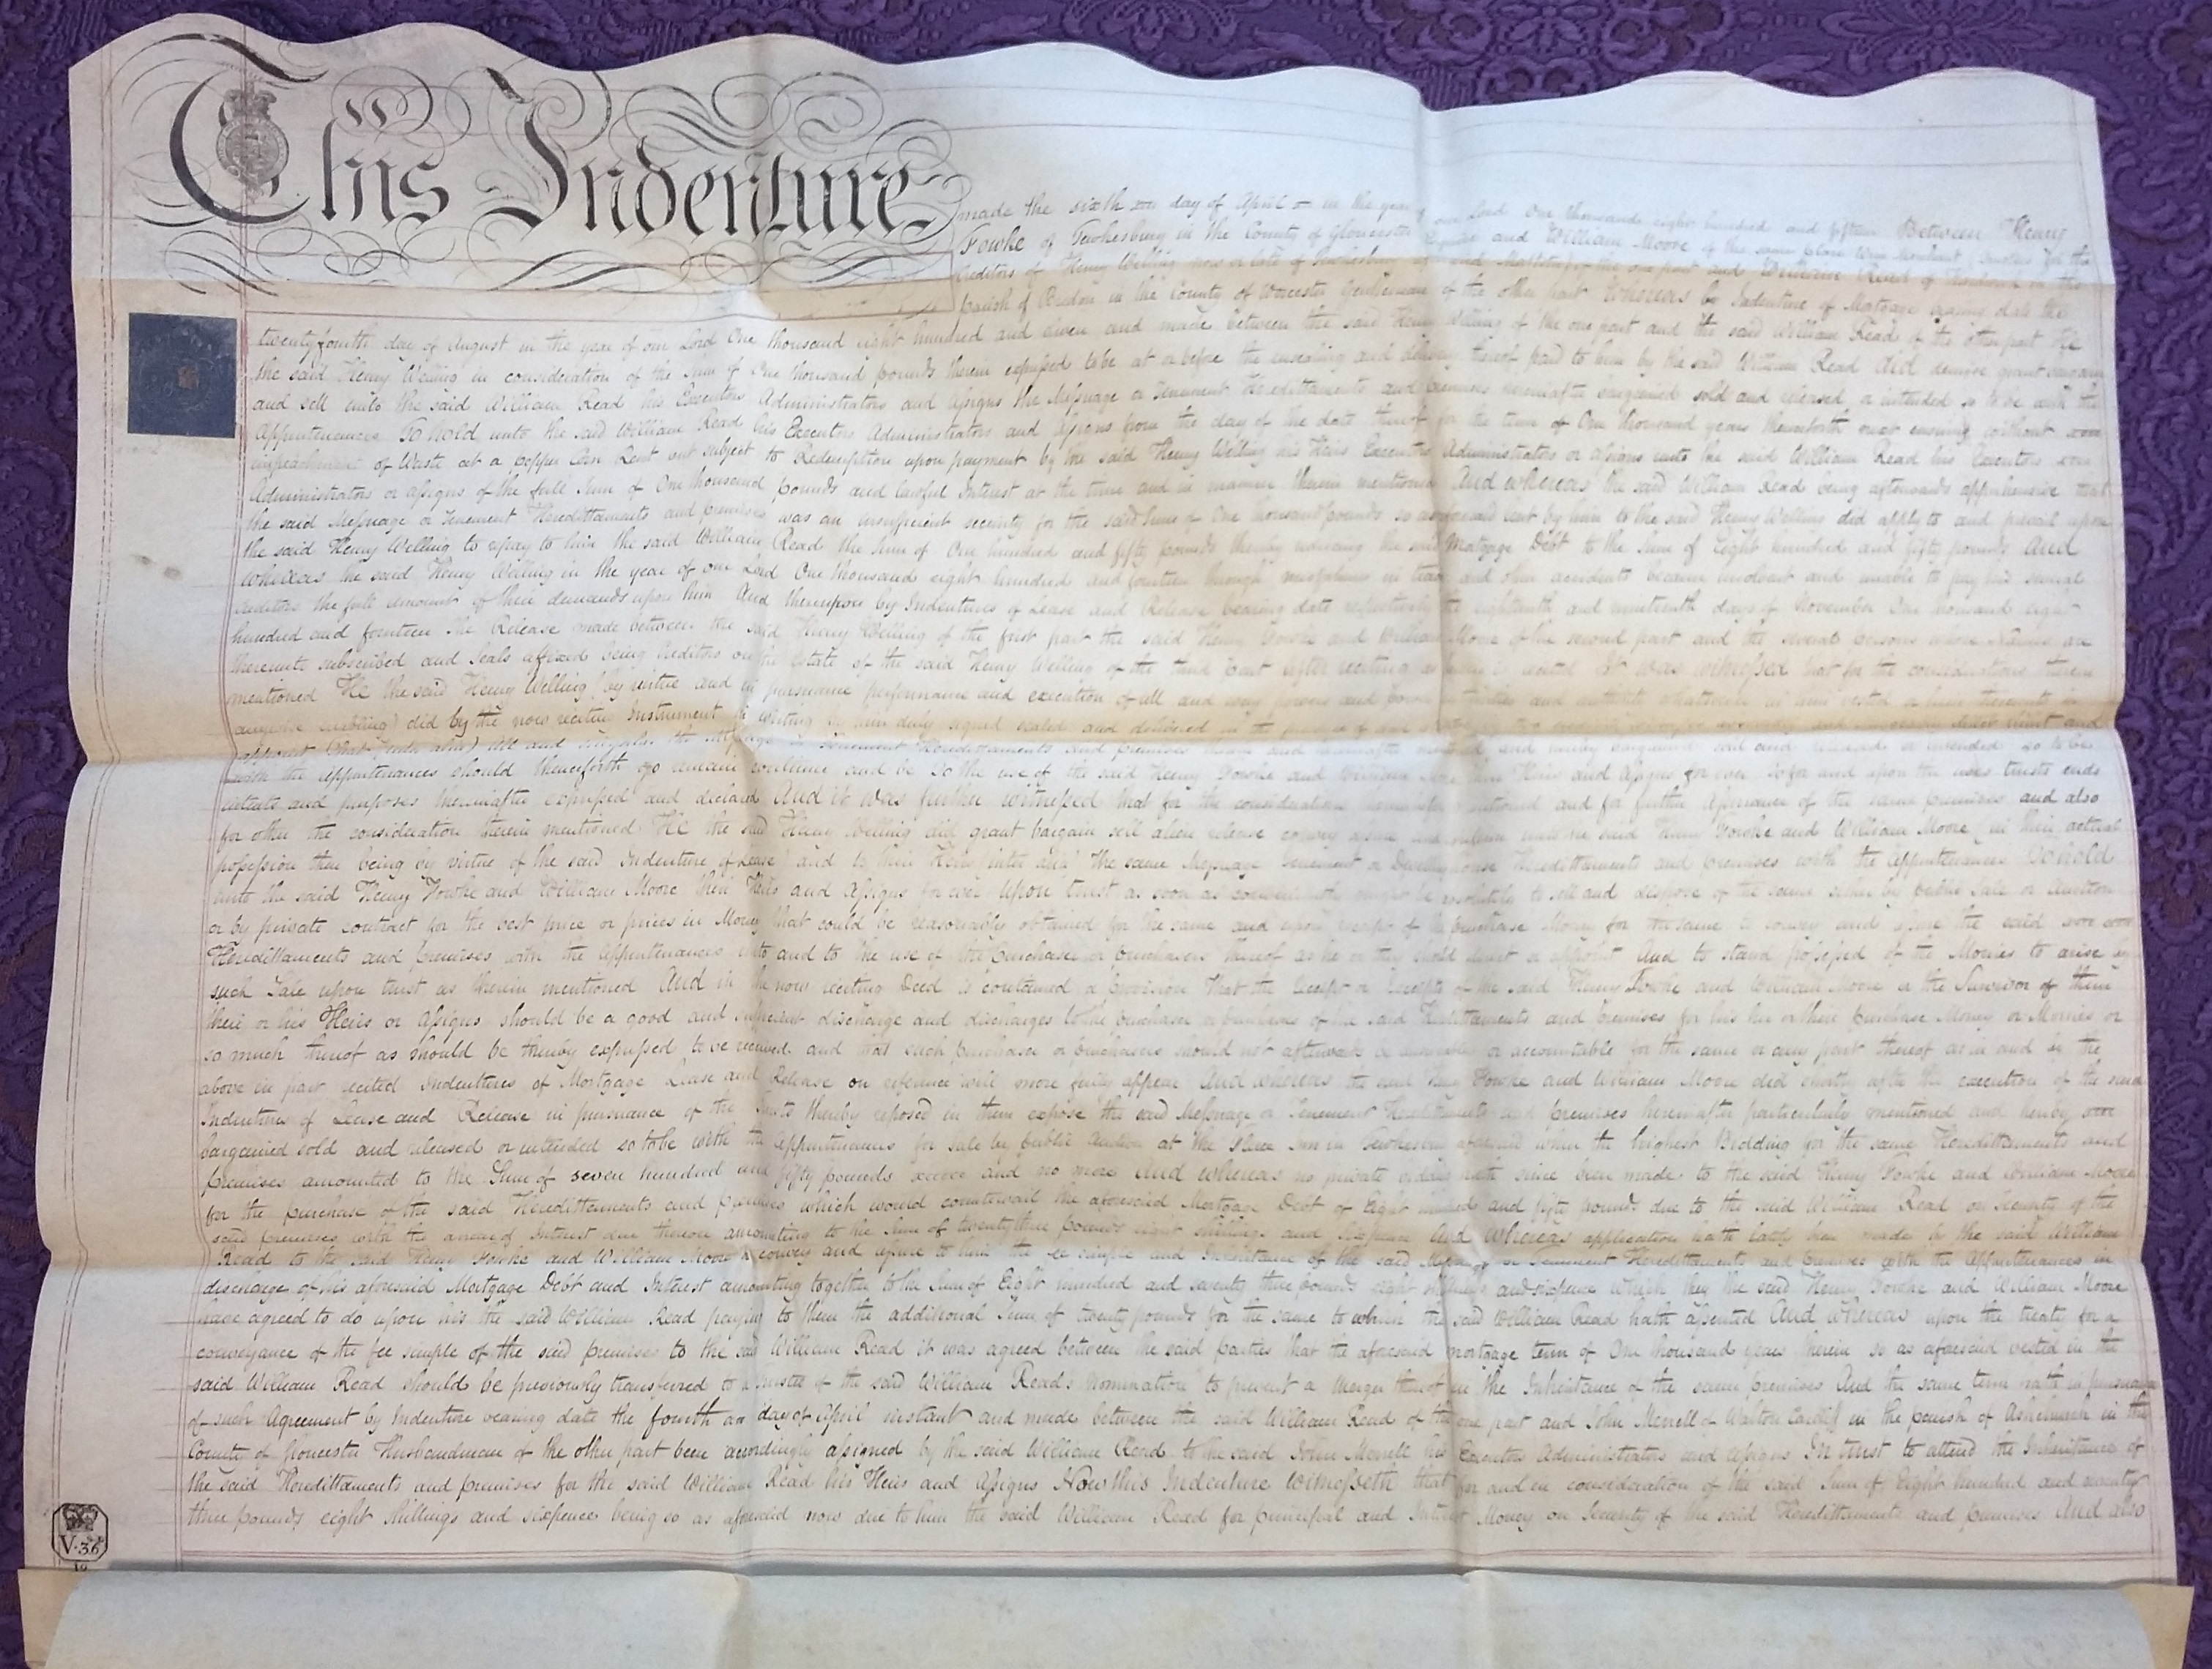 This Indenture
made the sixth day of April in the year of our Lord One thousand eight hundred and fifteen Between Henry
Fowke of Tewkesbury in the County of Gloucester Esquire and William Moore of the same place for the
Creditors of Henry Welling now or late of Tewkesbury of the one part and William Read of in the
parish of Bredon in the County of Worcester Gentleman of the other part Whereas by Indenture of Mortgage bearing date the
twenty fourth day of August in the year of our Lord One thousand eight hundred and eleven and made between the said Henry Welling of the one part and the said William Read of the other part He
the said Henry Welling in consideration of the Sum of One thousand pounds therein expressed to be at or before the ensealing and delivery thereof paid to him by the said William Read did demise grant bargain
and sell unto the said William Read his Executors Administrators and Assigns the Messuage or Tenement Hereditaments and premises hereinafter bargained sold and released or intended so to be with the
Appurtenances To hold unto the said William Read his Executors Administrators and Assigns from the day of the date thereof for the term of One thousand years thenceforth next ensuing without
impeachment of Waste at a pepper Corn Rent but subject to Redemption upon payment by the said Henry Welling his Heirs Executors Administrators or Assigns unto the said William Read his Executors
Administrators or Assigns of the full Sum of One thousand pounds and lawful Interest at the time and in manner therein mentioned And whereas the said William Read being afterwards apprehensive that
the said Messuage or Tenement Hereditaments and premises was an insufficient security for the said Sum of One thousand pounds so as aforesaid lent by him to the said Henry Welling did apply to and prevail upon
the said Henry Welling to repay to him the said William Read the Sum of One hundred and fifty pounds thereby reducing the said Mortgage Debt to the Sum of Eight hundred and fifty pounds And
whereas the said Henry Welling in the year of our Lord One thousand eight hundred and fourteen through misfortunes in trade and other accidents became insolvent and unable to pay his several
Creditors the full amount of their demands upon him And thereupon by Indentures of Lease and Release bearing date respectively the eighteenth and nineteenth days of November One thousand eight
hundred and fourteen the Release made between the said Henry Welling of the first part the said Henry Fowke and William Moore of the second part and the several persons whose Names are
thereunto subscribed and Seals affixed being Creditors on the Estate of the said Henry Welling of the third part after reciting as therein is recited It was witnessed that for the considerations therein
mentioned He the said Henry Welling by virtue and in pursuance performance and execution of all and every powers and
enabling) did by the now reciting Instrument in writing by him duly signed sealed and delivered in the presence of
appoint (inter alia) All and singular the Messuage or Tenement Hereditaments and premises
with the Appurtenances should thenceforth go remain continue and be To the use of the said Henry Fowke and William Moore their Heirs and Assigns for ever To for and upon the uses trusts ends
intents and purposes thereinafter expressed and declared And it was further witnessed that for the consideration mentioned and for further Assurance of the same premises and also
for other the consideration therein mentioned He the said Henry Welling did grant bargain sell alien release convey assure and confirm unto the said Henry Fowke and William Moore (in their actual
possession then being by virtue of the said Indenture of Lease) and to their Heirs (inter alia) the same Messuage Tenement or Dwellinghouse Hereditaments and premises with the Appurtenances To hold
unto the said Henry Fowke and William Moore their Heirs and Assigns for ever Upon trust as soon as conveniently might be absolutely to sell and dispose of the same either by Public Sale or Auction
or by private contract for the best price or prices in Money that could be reasonably obtained for the same and upon receipt of the Purchase Money for the same to convey and assure the said
Hereditaments and premises with the Appurtenances unto and to the use of the Purchaser or Purchasers thereof as he or they should direct or appoint And to stand possessed of the Monies to arise by
such Sale upon trust as therein mentioned And in the now reciting Deed is contained a Provision That the Receipt or Receipts of the said Henry Fowke and William Moore or the Survivor of them
their or his Heirs or Assigns should be a good and sufficient discharge and discharges to the Purchaser or Purchasers of the said Hereditaments and premises for his her or their Purchase Money or Monies or
so much thereof as should be thereby expressed to be received and that such Purchaser or Purchasers should not afterwards be answerable or accountable for the same or any part thereof as in and by the
above in part recited Indentures of Mortgage Lease and Release on reference will more fully appear And whereas the said Henry Fowke and William Moore did shortly after the execution of the said
Indentures of Lease and Release in pursuance of the trusts thereby reposed in them expose the said Messuage or Tenement Hereditaments and premises hereinafter particularly mentioned and hereby
bargained sold and released or intended so to be with the Appurtenances for sale by public Auction at the Inn in Tewkesbury aforesaid when the highest Bidding for the same Hereditaments and
premises amounted to the Sum of seven hundred and fifty pounds and no more And whereas no private hath since been made to the said Henry Fowke and William Moore
for the purchase of the said Hereditaments and premises which would countervail the aforesaid Mortgage Debt of Eight hundred and fifty pounds due to the said William Read on Security of the
said premises with the arrears of Interest due thereon amounting to the Sum of twenty three pounds eight shillings and sixpence And whereas application hath lately been made by the said William
Read to the said Henry Fowke and William Moore to convey and assure to him the fee simple and Inheritance of the said Messuage or Tenement Hereditaments and premises with the Appurtenances in
discharge of his aforesaid Mortgage Debt and Interest amounting together to the Sum of Eight hundred and seventy three pounds eight shillings and sixpence which they the said Henry Fowke and William Moore
have agreed to do upon his the said William Read paying to them the additional Sum of twenty pounds for the same to which the said William Read hath assented And whereas upon the treaty for a
conveyance of the fee simple of the said premises to the said William Read it was agreed between the said parties that the aforesaid mortgage term of One thousand years therein so as aforesaid vested in the
said William Read should be previously transferred to a trustee of the said William Read's nomination to prevent a Merger thereof in the Inheritance of the same premises And the same term hath in pursuance
of such Agreement by Indenture bearing date the fourth day of April instant and made between the said William Read of the one part and John Merrell of Walton Cardiff in the parish of Ashchurch in the
County of Gloucester Husbandman of the other part been accordingly assigned by the said William Read to the said John Merrell his Executors Administrators and Assigns In trust to attend the Inheritance of
the said Hereditaments and premises for the said William Read his Heirs and Assigns Now this Indenture Witnesseth that for and in consideration of the said Sum of Eight hundred and seventy
three pounds eight shillings and sixpence being so as aforesaid now due to him the said William Read for principal and Interest Money on Security of the said Hereditaments and premises And also
V.36